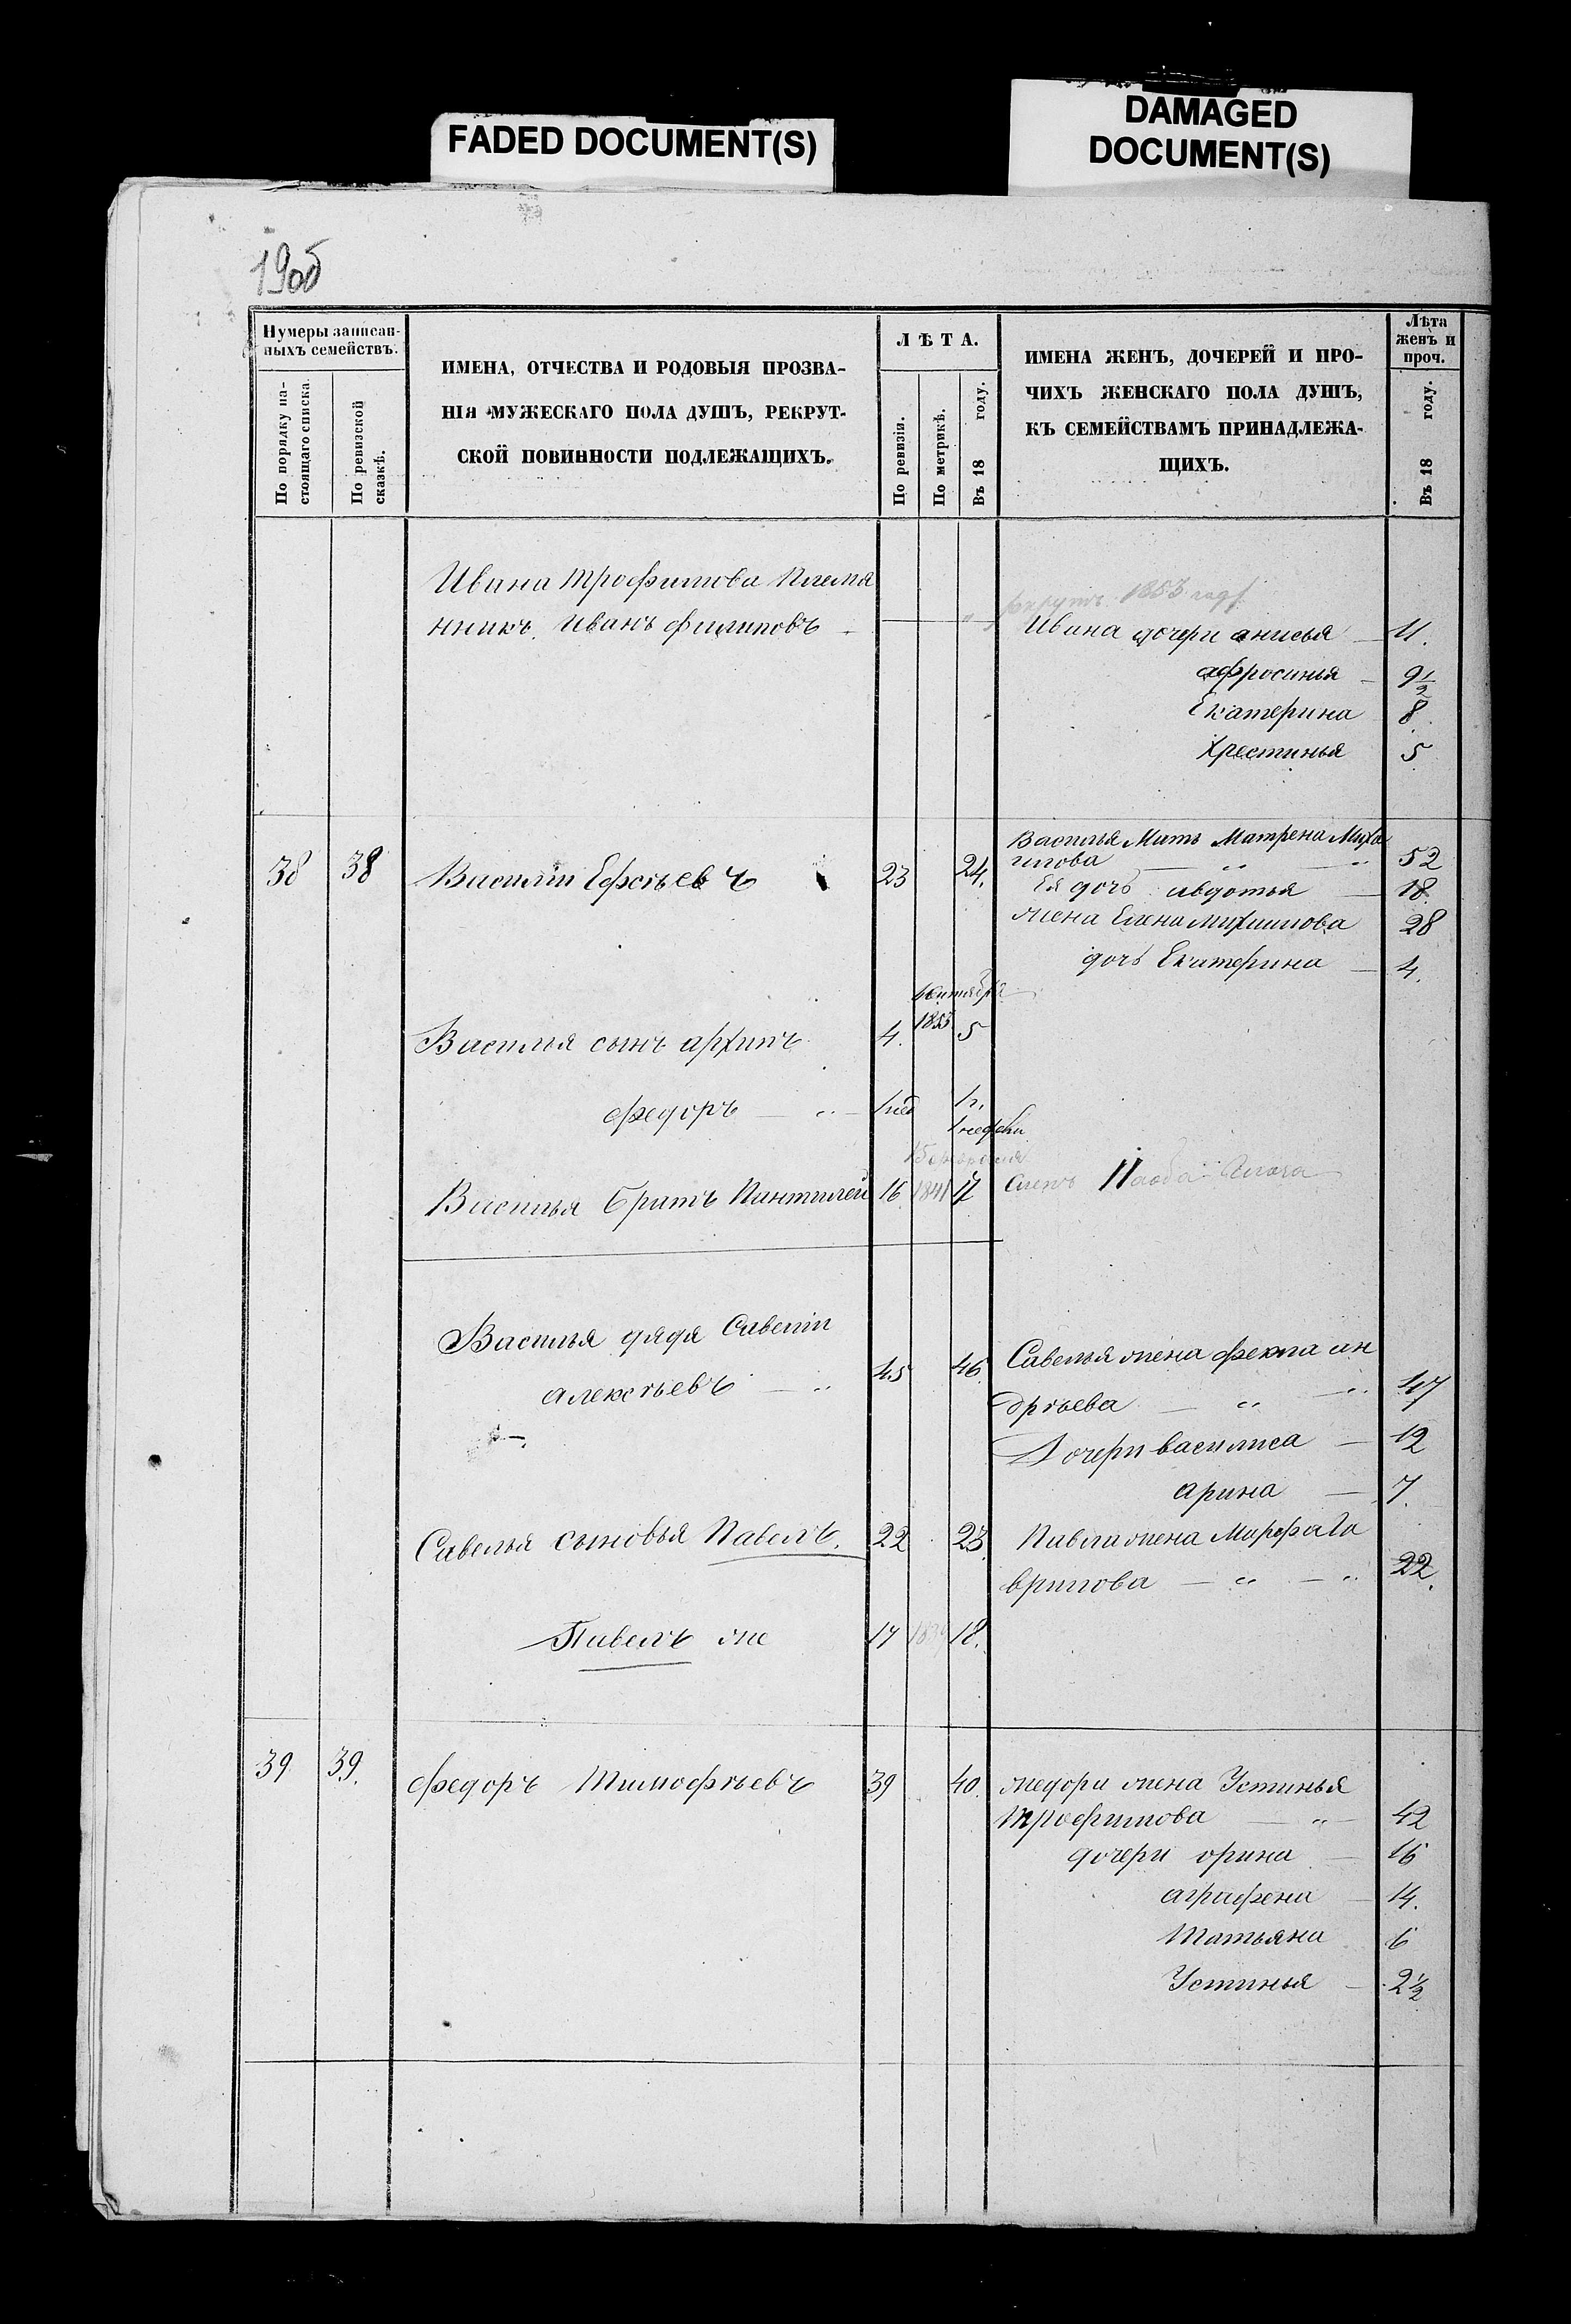 FADED DOCUMENT(S)
DAMAGED
DOCUMENT(S)
190б
Нумеры записан-
ныхъ семействъ.
По порядку на-
стоящаго списка.
По ревизской
сказкѣ.
ИМЕНА, ОТЧЕСТВА И РОДОВЫЯ ПРОЗВА-
НІЯ МУЖЕСКАГО ПОЛА ДУШЪ, РЕКРУТ-
СКОЙ ПОВИННОСТИ ПОДЛЕЖАЩИХЪ.
ЛѢТА.
По ревизіи.
По метрикѣ.
Въ 18 году.
ИМЕНА ЖЕНЪ, ДОЧЕРЕЙ И ПРО-
ЧИХЪ ЖЕНСКАГО ПОЛА ДУШЪ,
КЪ СЕМЕЙСТВАМЪ ПРИНАДЛЕЖА-
ЩИХЪ.
Лѣта
женъ и
проч.
Въ 18 году.
Ивана Трофимова племя
нникъ Иванъ Филиповъ
1853 года
Ивана дочери анисья 11.
афросинья 9 1/2
Екатерина 8
Хрестинья 5
38 38 Василіи Ефсѣевъ 23 24.
Василья Мать Матрена Миха
илова 52
Ея дочь авдотья 18
жена Елена михаилова 28
дочь Екатерина 4.
сентября
Василья сынъ архипъ 4. 1853 5
федоръ 1 нед 1 г.
1 недели
Василья братъ Пантилей 16 1841 17
Василья дядя Савеліи
алексѣевъ 45 46
Савелья жена фекла ан
дрѣева 47
Дочери василиса 12
арина 7.
Савелья сыновья Павелъ. 22 23.
Павла жена Марфа Га
врилова 22.
Павелъ же 17 18.
39 39. федоръ Тимофѣевъ 39 40.
федора жена Устинья
Трофимова 42
дочери орина 16
аграфена 14.
Татьяна 6
Устинья 2 1/2